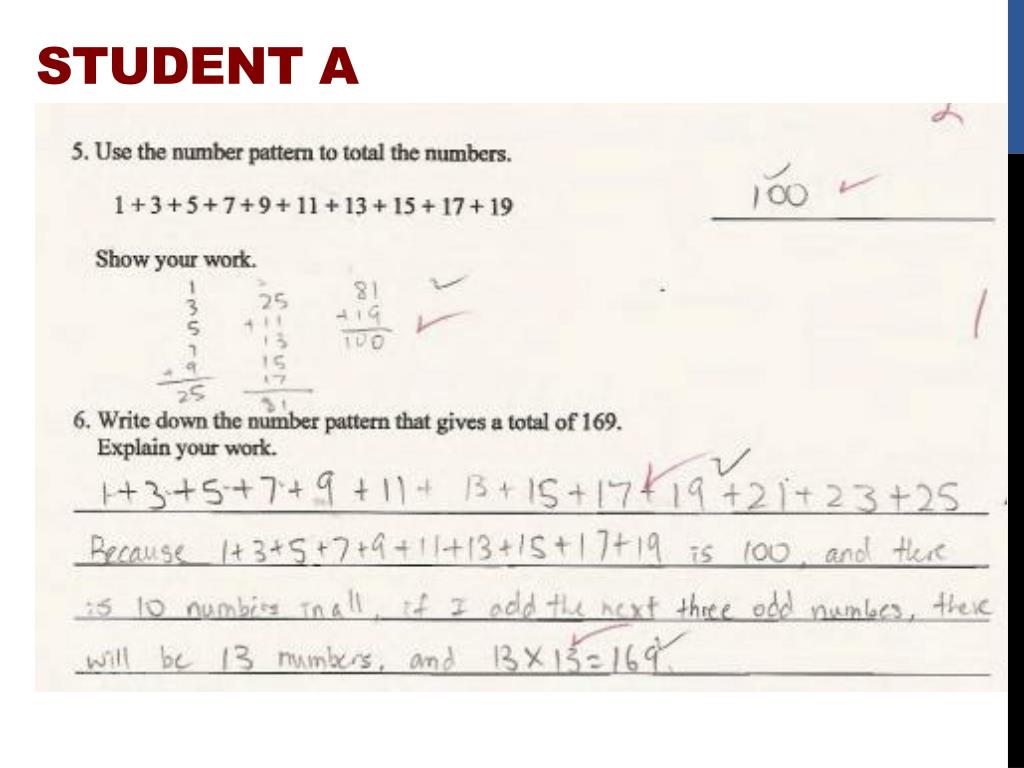 STUDENT A
2
5. Use the number pattern to total the numbers.
100
1 + 3 + 5 + 7 + 9 + 11 + 13 + 15 + 17 + 19
Show your work.
1
3
5
7
+ 9
25
2
25
+ 11
13
15
17
81
81
+19
100
1
6. Write down the number pattern that gives a total of 169.
Explain your work.
1+3+5+7+9+11+13+15+17+19+21+23+25
Because 1+3+5+7+9+11+13+15+17+19 is 100, and there
is 10 numbers in all, if I add the next three odd number, there
will be 13 numbers, and 13×13=169.